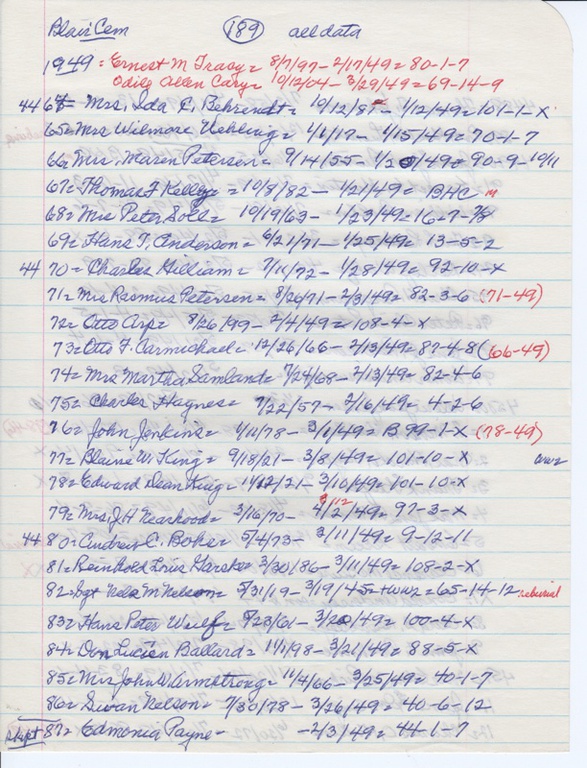 Blair Cem 189 all data
1949 = Ernest M Tracy = 8/7/97 - 2/17/49 = 80-1-7
Odile Allen Cary = 10/12/04 - 3/29/49 = 69-14-9
44 64 = Mrs. Ida E. Behrendt = 10/12/87 - 1/12/49 = 101-1-X
65 = Mrs Wilmore Uehling = 4/1/17 - 1/15/49 = 70-1-7
66 = Mrs. Maren Peterson = 9/14/55 - 1/20/49 = 90-9-10/11
67 = Thomas F Kelly = 10/8/82 - 1/21/49 = BHC
68 = Mrs Peter Soll = 10/19/63 - 1/23/49 = 16-7-7/8
69 = Hans T. Anderson = 6/21/71 - 1/25/49 = 13-5-2
44 70 = Charles Gilliam = 7/11/72 - 1/28/49 = 92-10-X
71 = Mrs Rasmus Petersen = 8/26/71 - 2/3/49 = 82-3-6 (71-49)
72 = Otto Arp = 8/26/99 - 2/4/49 = 108-4-X
73 = Otto F. Carmichael = 12/26/66 - 2/13/49 = 87-4-8 (66-49)
74 = Mrs Martha Samland = 7/24/68 - 2/13/49 = 82-4-6
75 = Charles Haynes = 7/22/57 - 2/16/49 = 4-2-6
76 = John Jenkins = 1/11/78 - 3/1/49 = B 99-1-X (78-49)
77 = Blaine W. King = 9/18/21 - 3/8/49 = 101-10-X
78 = Edward Dean King = 11/12/21 - 3/10/49 = 101-10-X
3/12
79 = Mrs. J H Nearhood = 3/16/70 - 4/2/49 = 97-3-X
44 80 = Andrew C. Boke = 5/4/73 - 3/11/49 = 9-12-11
81 = Reinhold Louis Harske = 3/30/86 - 3/11/49 = 108-2-X
82 = Sgt M Nelson = 5/31/19 - 3/19/45 = WW2 = 65-14-12 reburial
83 = Hans Peter Wulf = 5/23/61 - 3/20/49 = 100-4-X
84 = Don Lucien Ballard = 1/1/98 - 3/21/49 = 88-5-X
85 = Mrs John W. Armstrong = 11/4/66 - 3/25/49 = 40-1-7
86 = Swan Nelson = 7/30/78 - 3/26/49 = 40-6-12
skipt 87 = Edmonia Payne - - 2/3/49 = 44-1-7